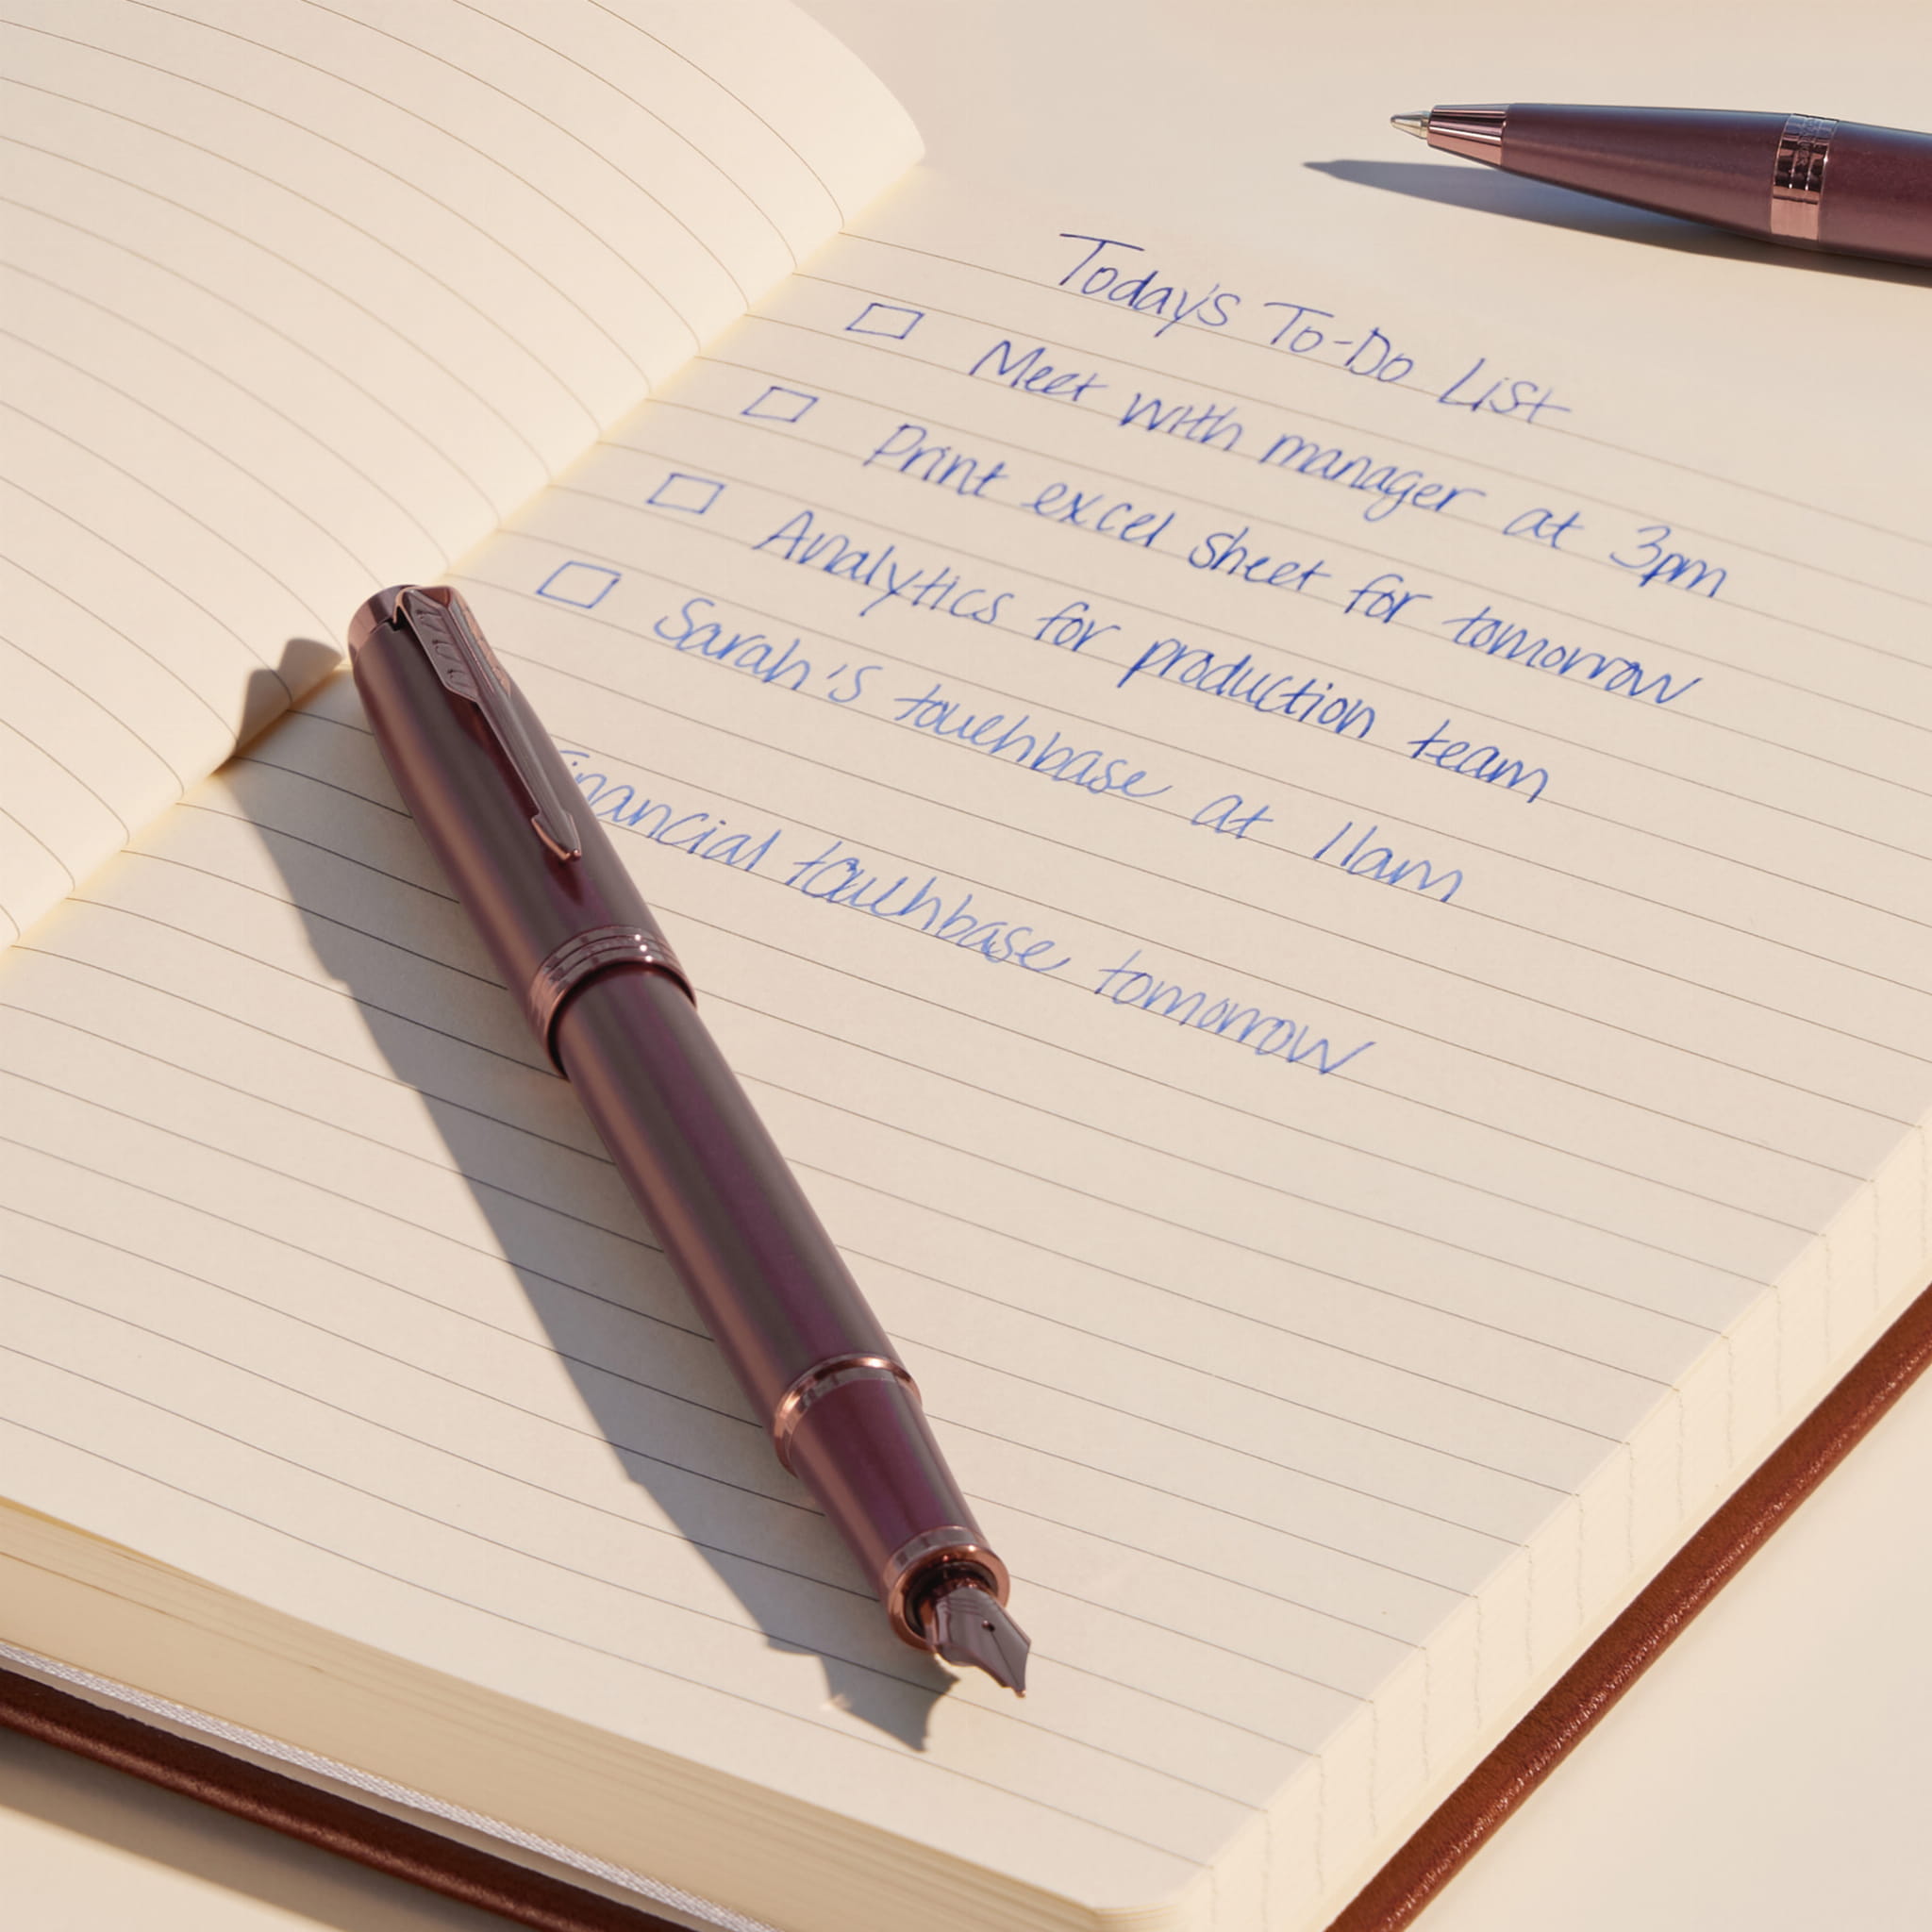 Today's To-Do List
Meet with manager at 3pm
Print excel sheet for tomorrow
Analytics for production team
Sarah's touchbase at 11am
Financial touchbase tomorrow